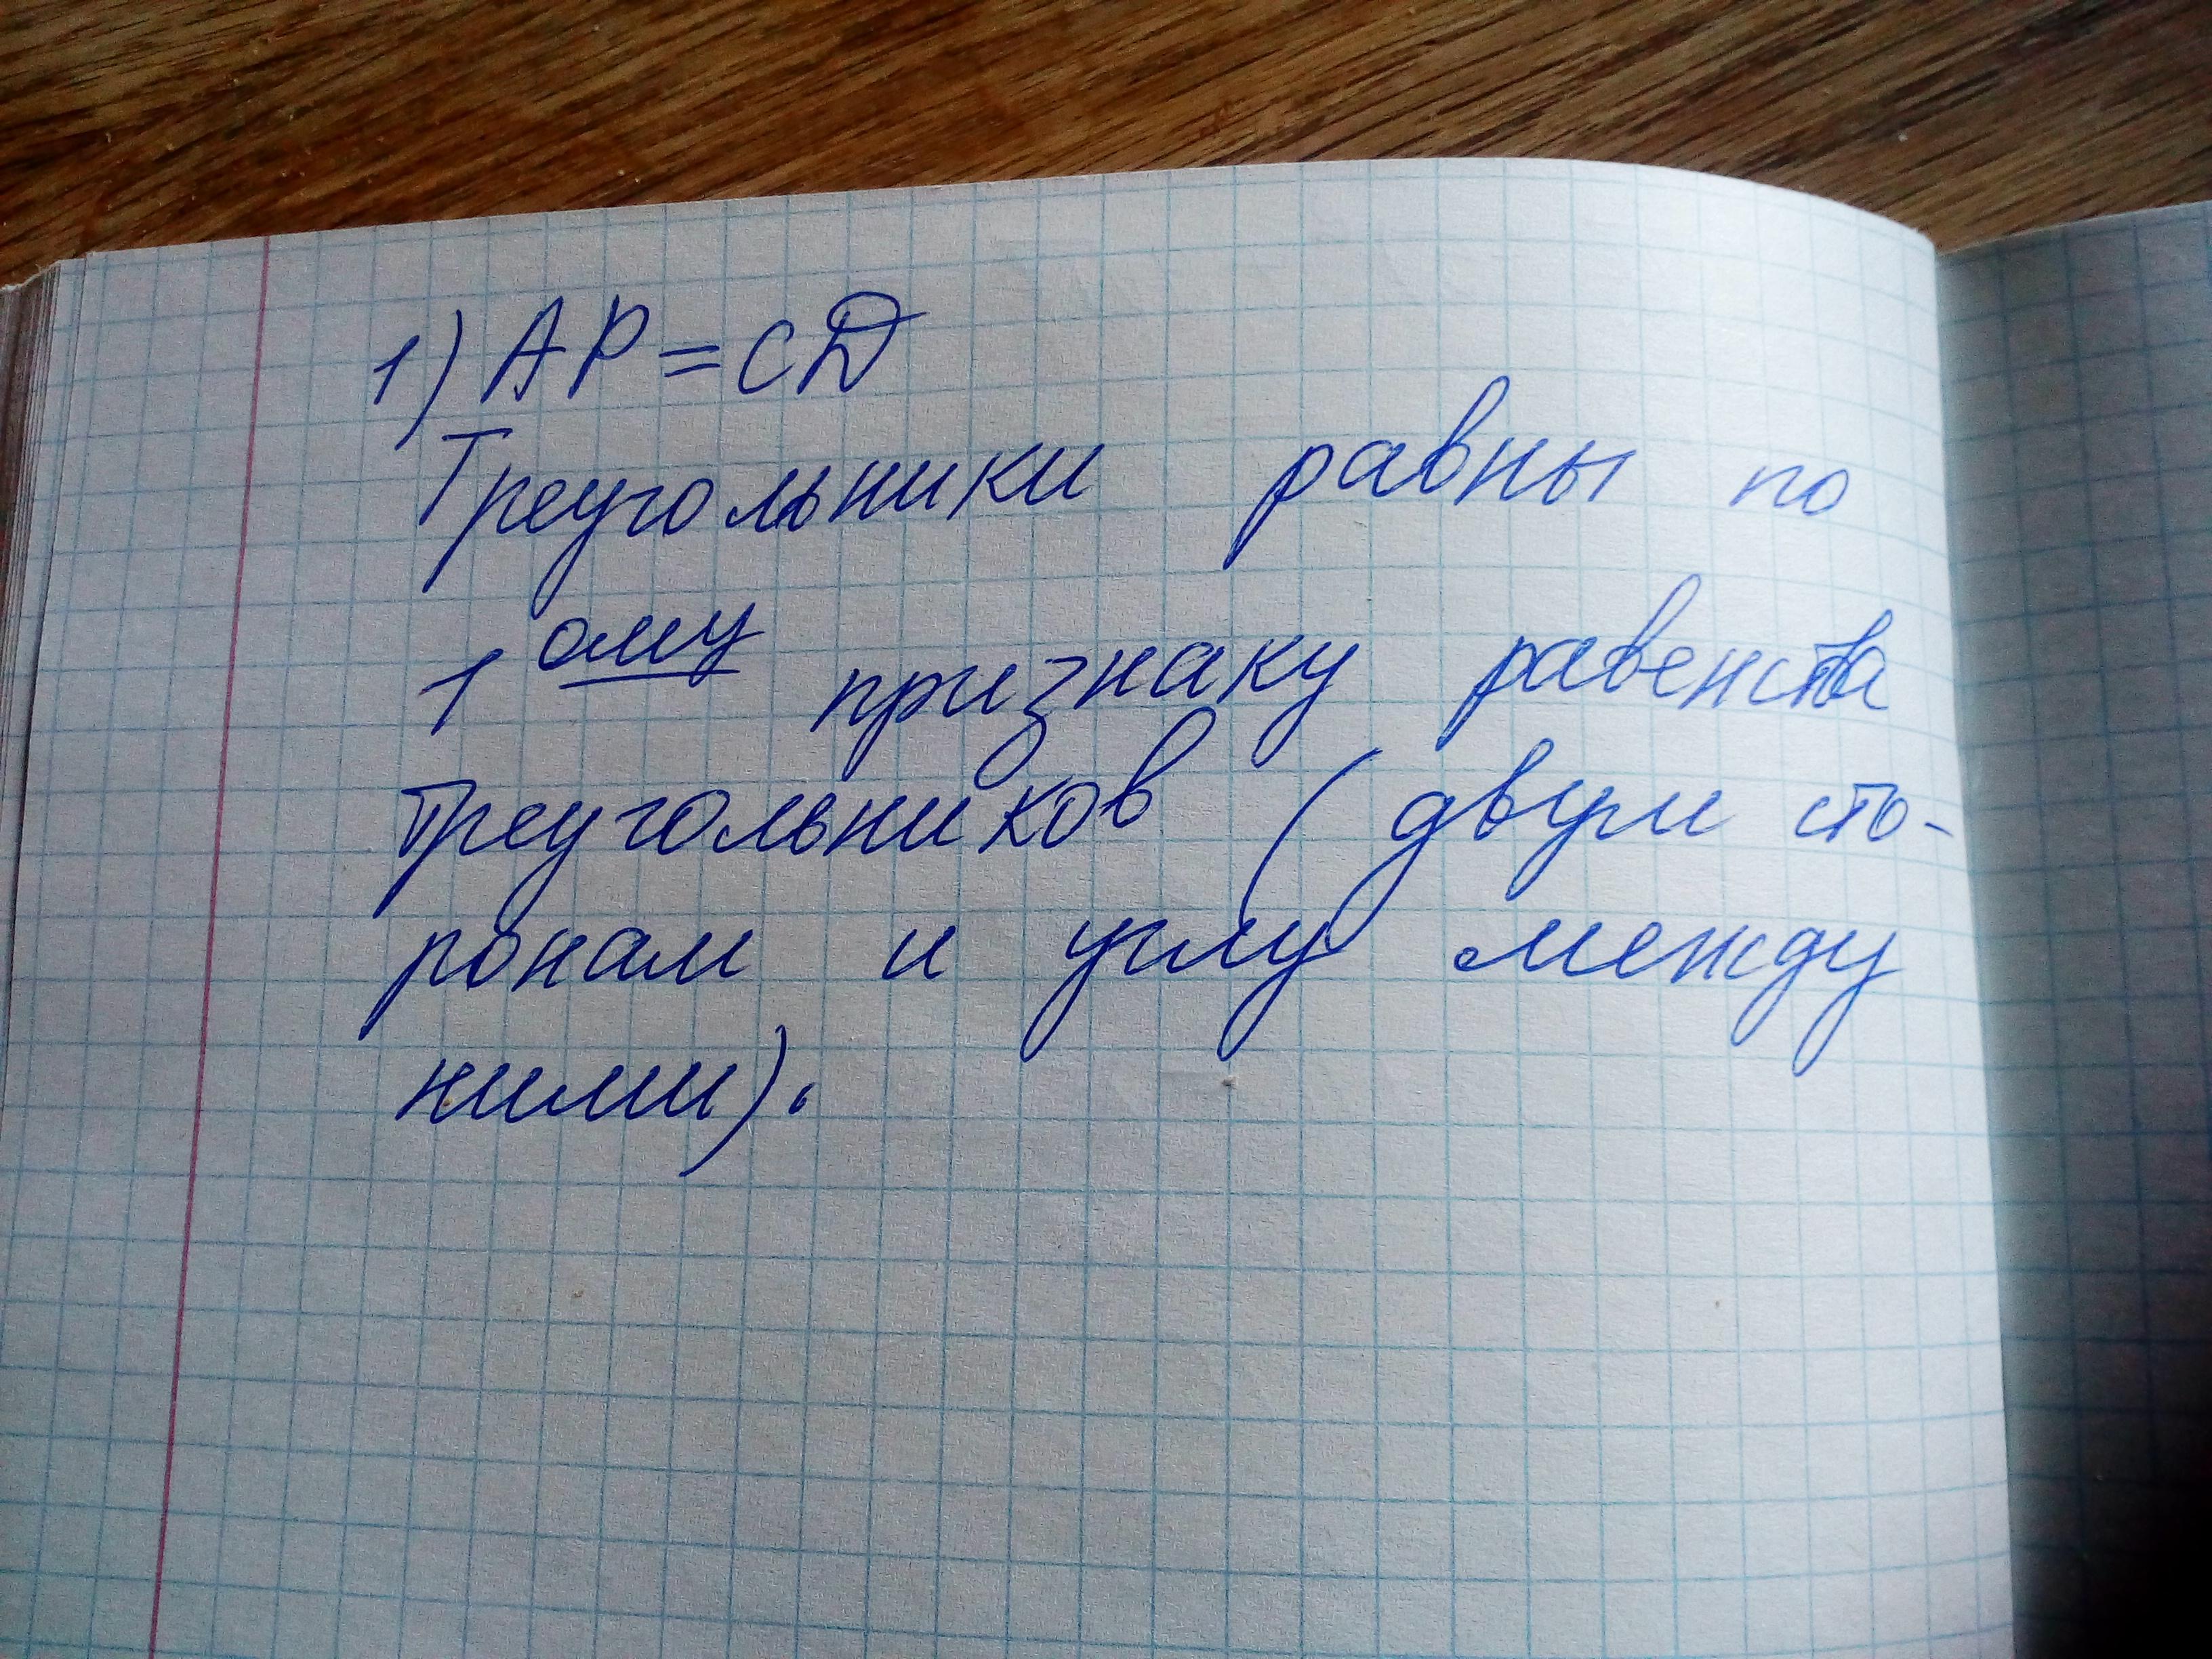 1) АР = СД
Треугольники равны по
1ому признаку равенства
треугольников (двум сто-
ронам и углу между
ними).